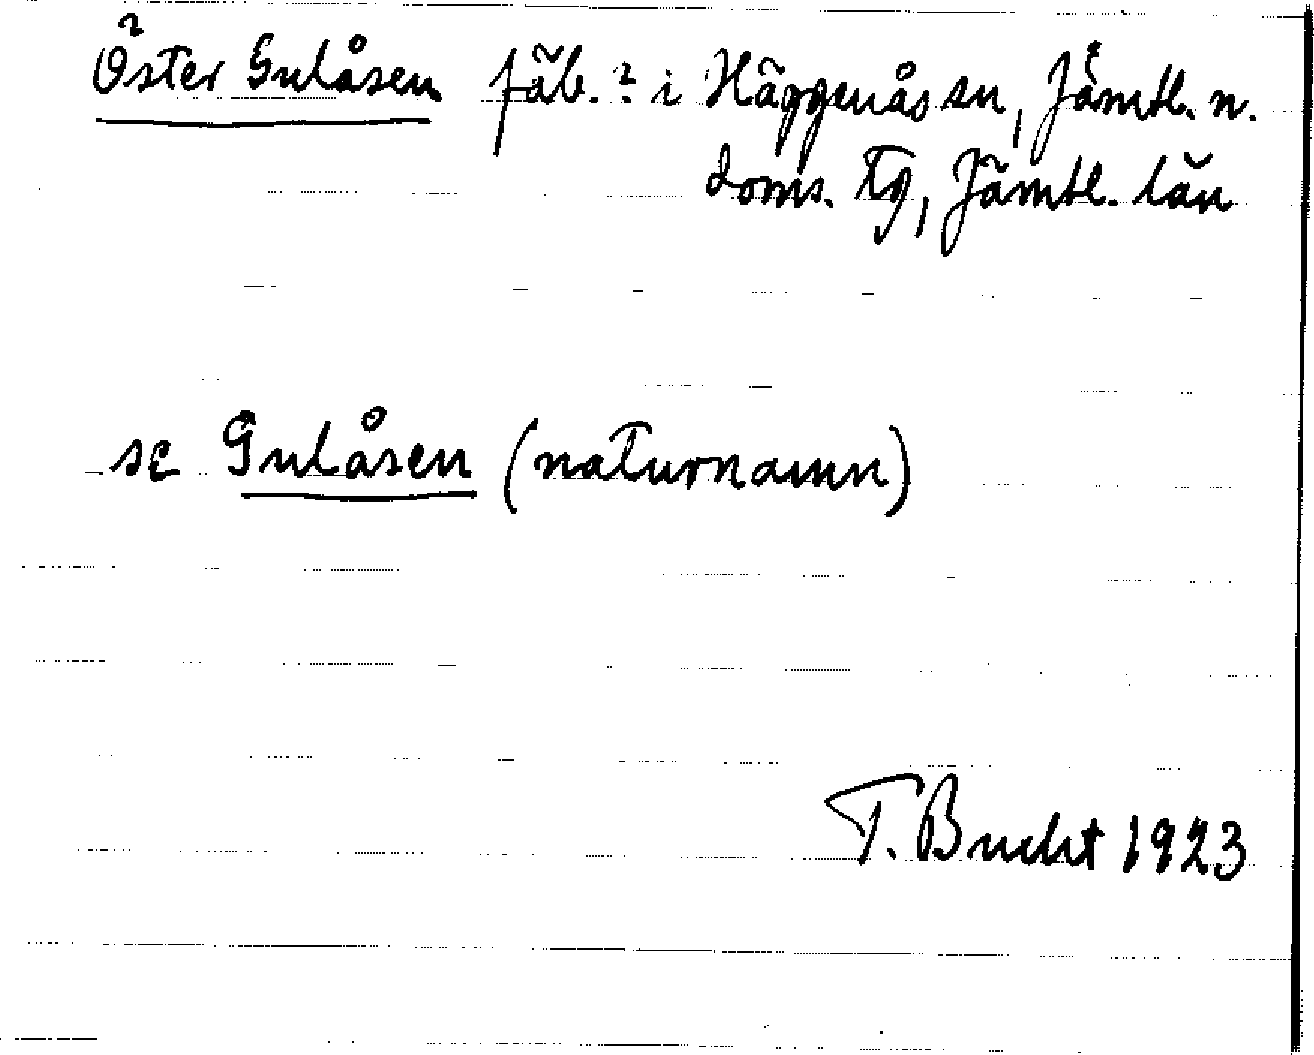 Öster Gulåsen fäb.? i Häggenås sn, Jämtl. n.
doms. Tg, Jämtl. län
se Gulåsen (naturnamn)
T. Bucht 1923